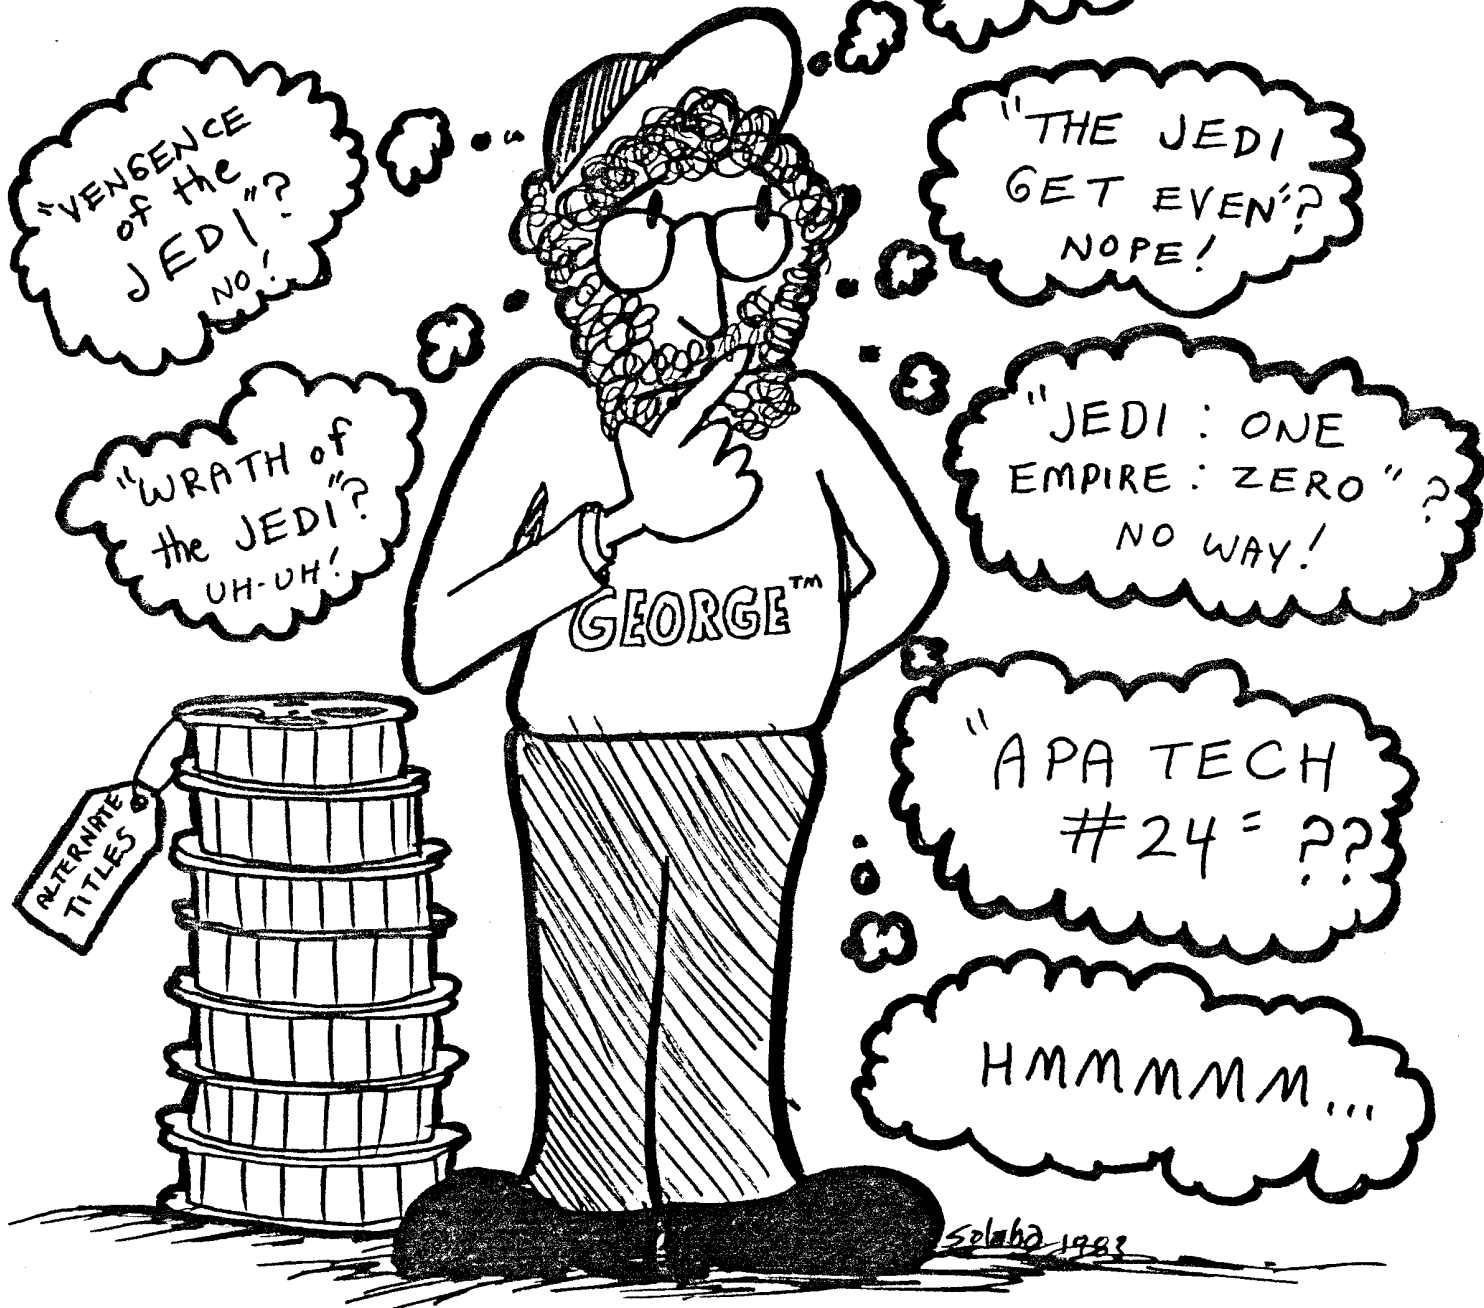 "VENGENCE
of the
JEDI"?
NO!
"WRATH of
the JEDI"?
UH-UH!
"THE JEDI
GET EVEN"?
NOPE!
"JEDI : ONE
EMPIRE : ZERO"?
NO WAY!
"APA TECH
#24" ??
HMMMMM...
GEORGE™
ALTERNATE
TITLES
1983